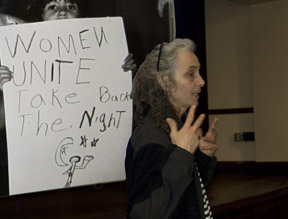 WOMEN
UNITE
Take Back
The Night